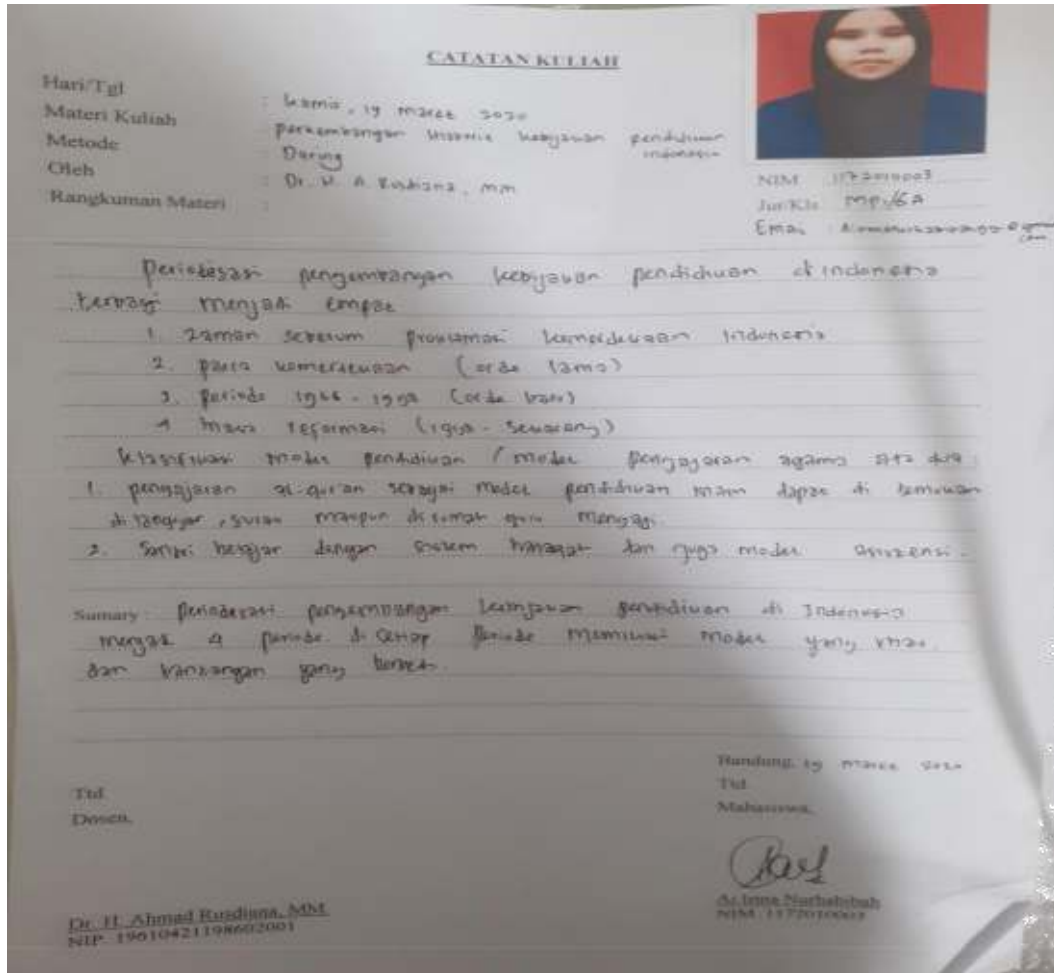 CATATAN KULIAH
Hari/Tgl : kamis, 19 maret 2020
Materi Kuliah perkembangan historis kebijakan pendidikan indonesia
Metode : Daring
Oleh : Dr. H. A. Rusdiana, mm
Rangkuman Materi :
NIM 1172010003
Jur/Kls MPI/6A
Emai :
Periodesasi pengembangan kebijakan pendidikan di indonesia
terbagi menjadi empat
1. Zaman sebelum proklamasi kemerdekaan Indonesia
2. pasca kemerdekaan (orde lama)
3. periode 1966 - 1998 (orde baru)
4 masa reformasi (1998 - sekarang)
klasifikasi model pendidikan / model pengajaran agama ada dua
1. pengajaran al-qur'an sebagai model pendidikan islam dapat di temukan
di langgar, surau maupun di rumah guru mengaji.
2. Santri belajar dengan sistem halaqah dan juga model asistensi.
Sumary : Periodesasi pengembangan kebijakan pendidikan di Indonesia
menjadi 4 periode di setiap Periode memiliki model yang khas
dan yang
Bandung, 19 maret 2020
Ttd
Mahasiswa,
Ttd
Dosen,
Ai Irma Nurhabibah
NIM 1172010003
Dr. H. Ahmad Rusdiana, MM
NIP 19610421198602001